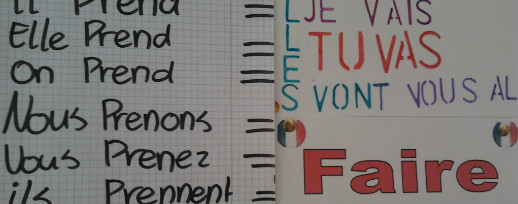 Il Prend
Elle Prend
On Prend
Nous Prenons
Vous Prenez
ils Prennent
LLES
JE VAIS
TU VAS
VONT VOUS AL
Faire